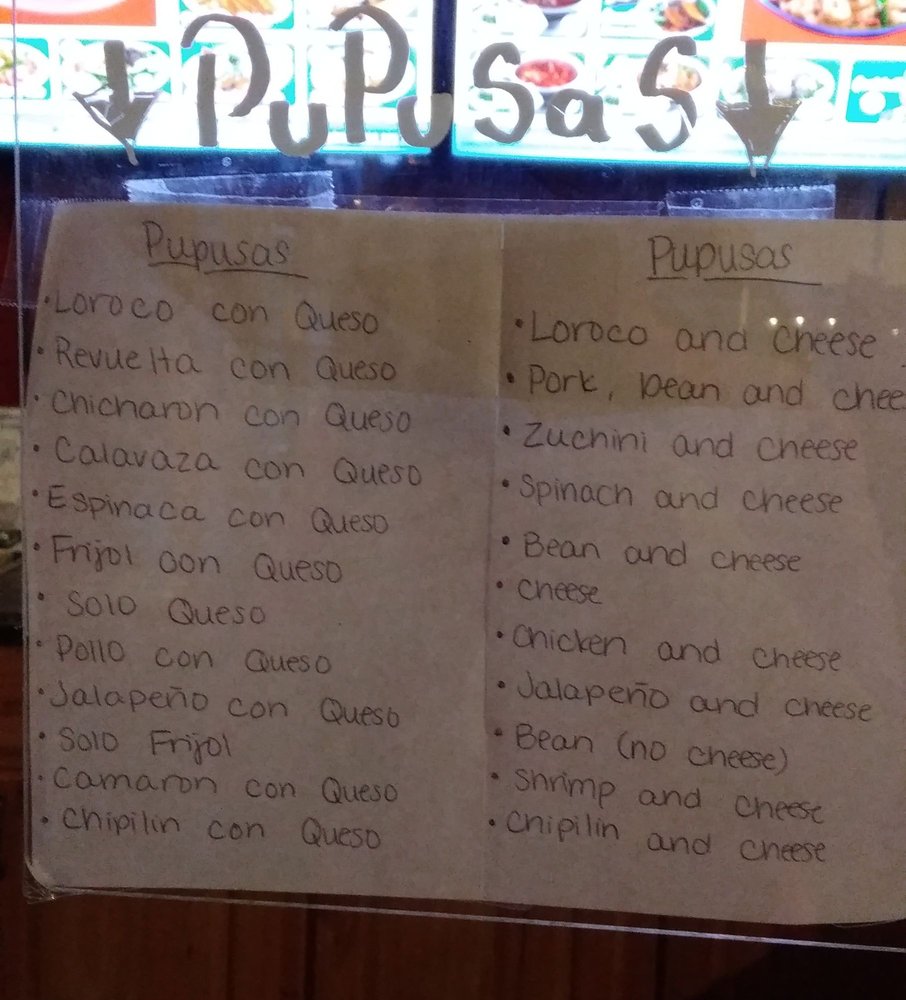 PuPuSaS
Pupusas
• Loroco con Queso
• Revuelta con Queso
• Chicharon con Queso
• Calavaza con Queso
• Espinaca con Queso
• Frijol con Queso
• Solo Queso
• Pollo con Queso
• Jalapeño con Queso
• Solo Frijol
• Camaron con Queso
• Chipilin con Queso
Pupusas
• Loroco and cheese
• Pork, bean and chee
• Zuchini and cheese
• Spinach and cheese
• Bean and cheese
• cheese
• Chicken and cheese
• Jalapeño and cheese
• Bean (no cheese)
• Shrimp and cheese
• Chipilin and cheese